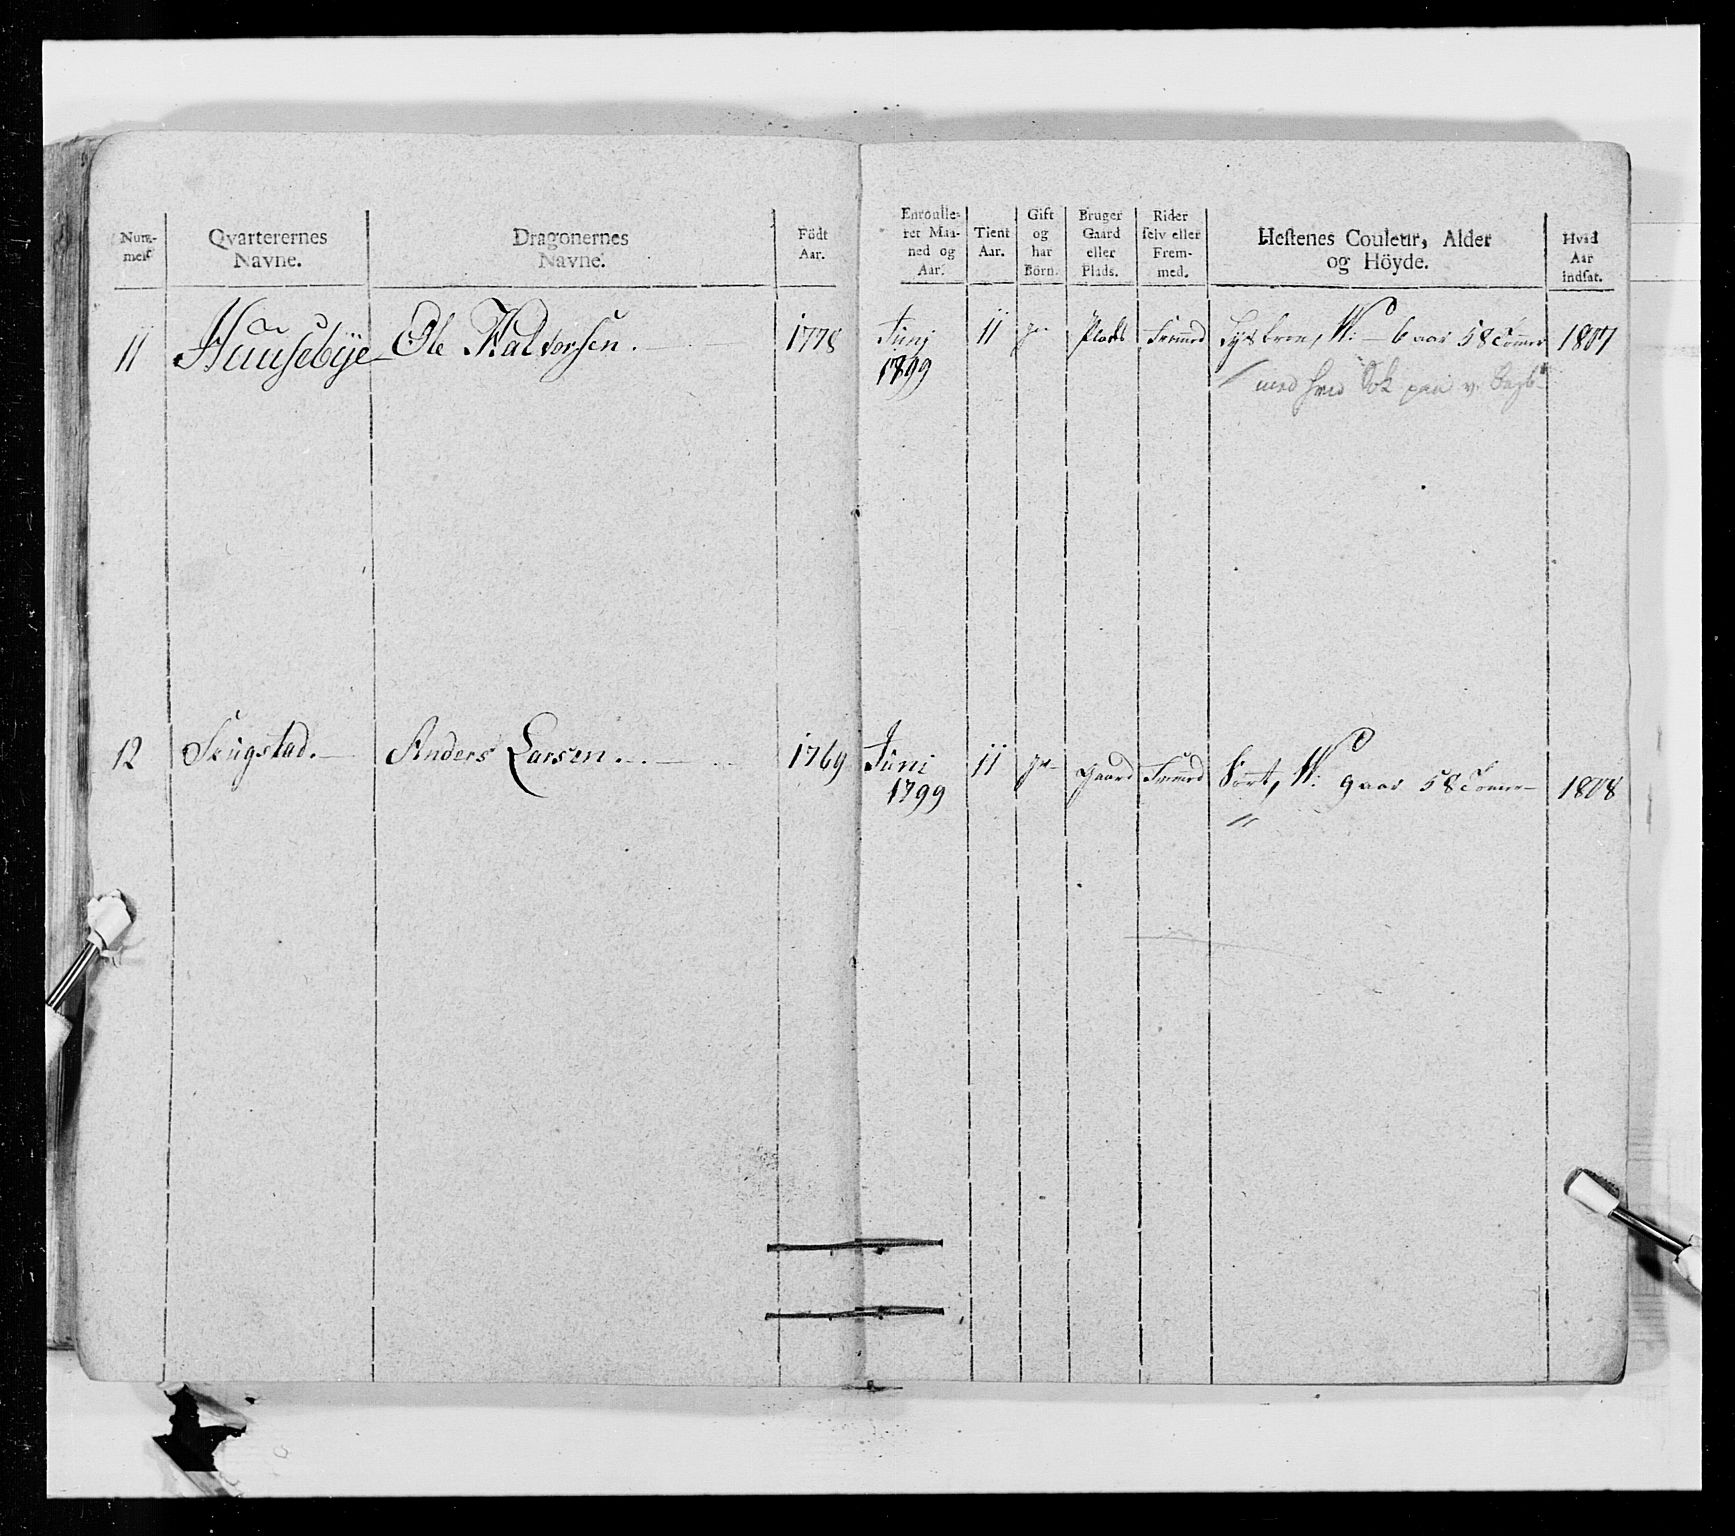 Num-
mer
Qvarterernes
Navne.
Dragonernes
Navne.
Födt
Aar.
Enroulle-
ret Maa-
ned og
Aar.
Tient
Aar.
Gift
og
har
Börn.
Bruger
Gaard
eller
Plads.
Rider
selv eller
Frem-
med.
Hestenes Couleur, Alder
og Höyde.
Hvad
Aar
indsat.
11 Huusebye Ole Halvorsen. 1778 Junj 11 Plads Fremed 6 aar 58 Tommer 1807
1799
med hvid Sok paa v.
12 Anders Larsen. 1769 Juni 11 gaard Fremed Sort, 9 aar 58 Tommer 1808
1799